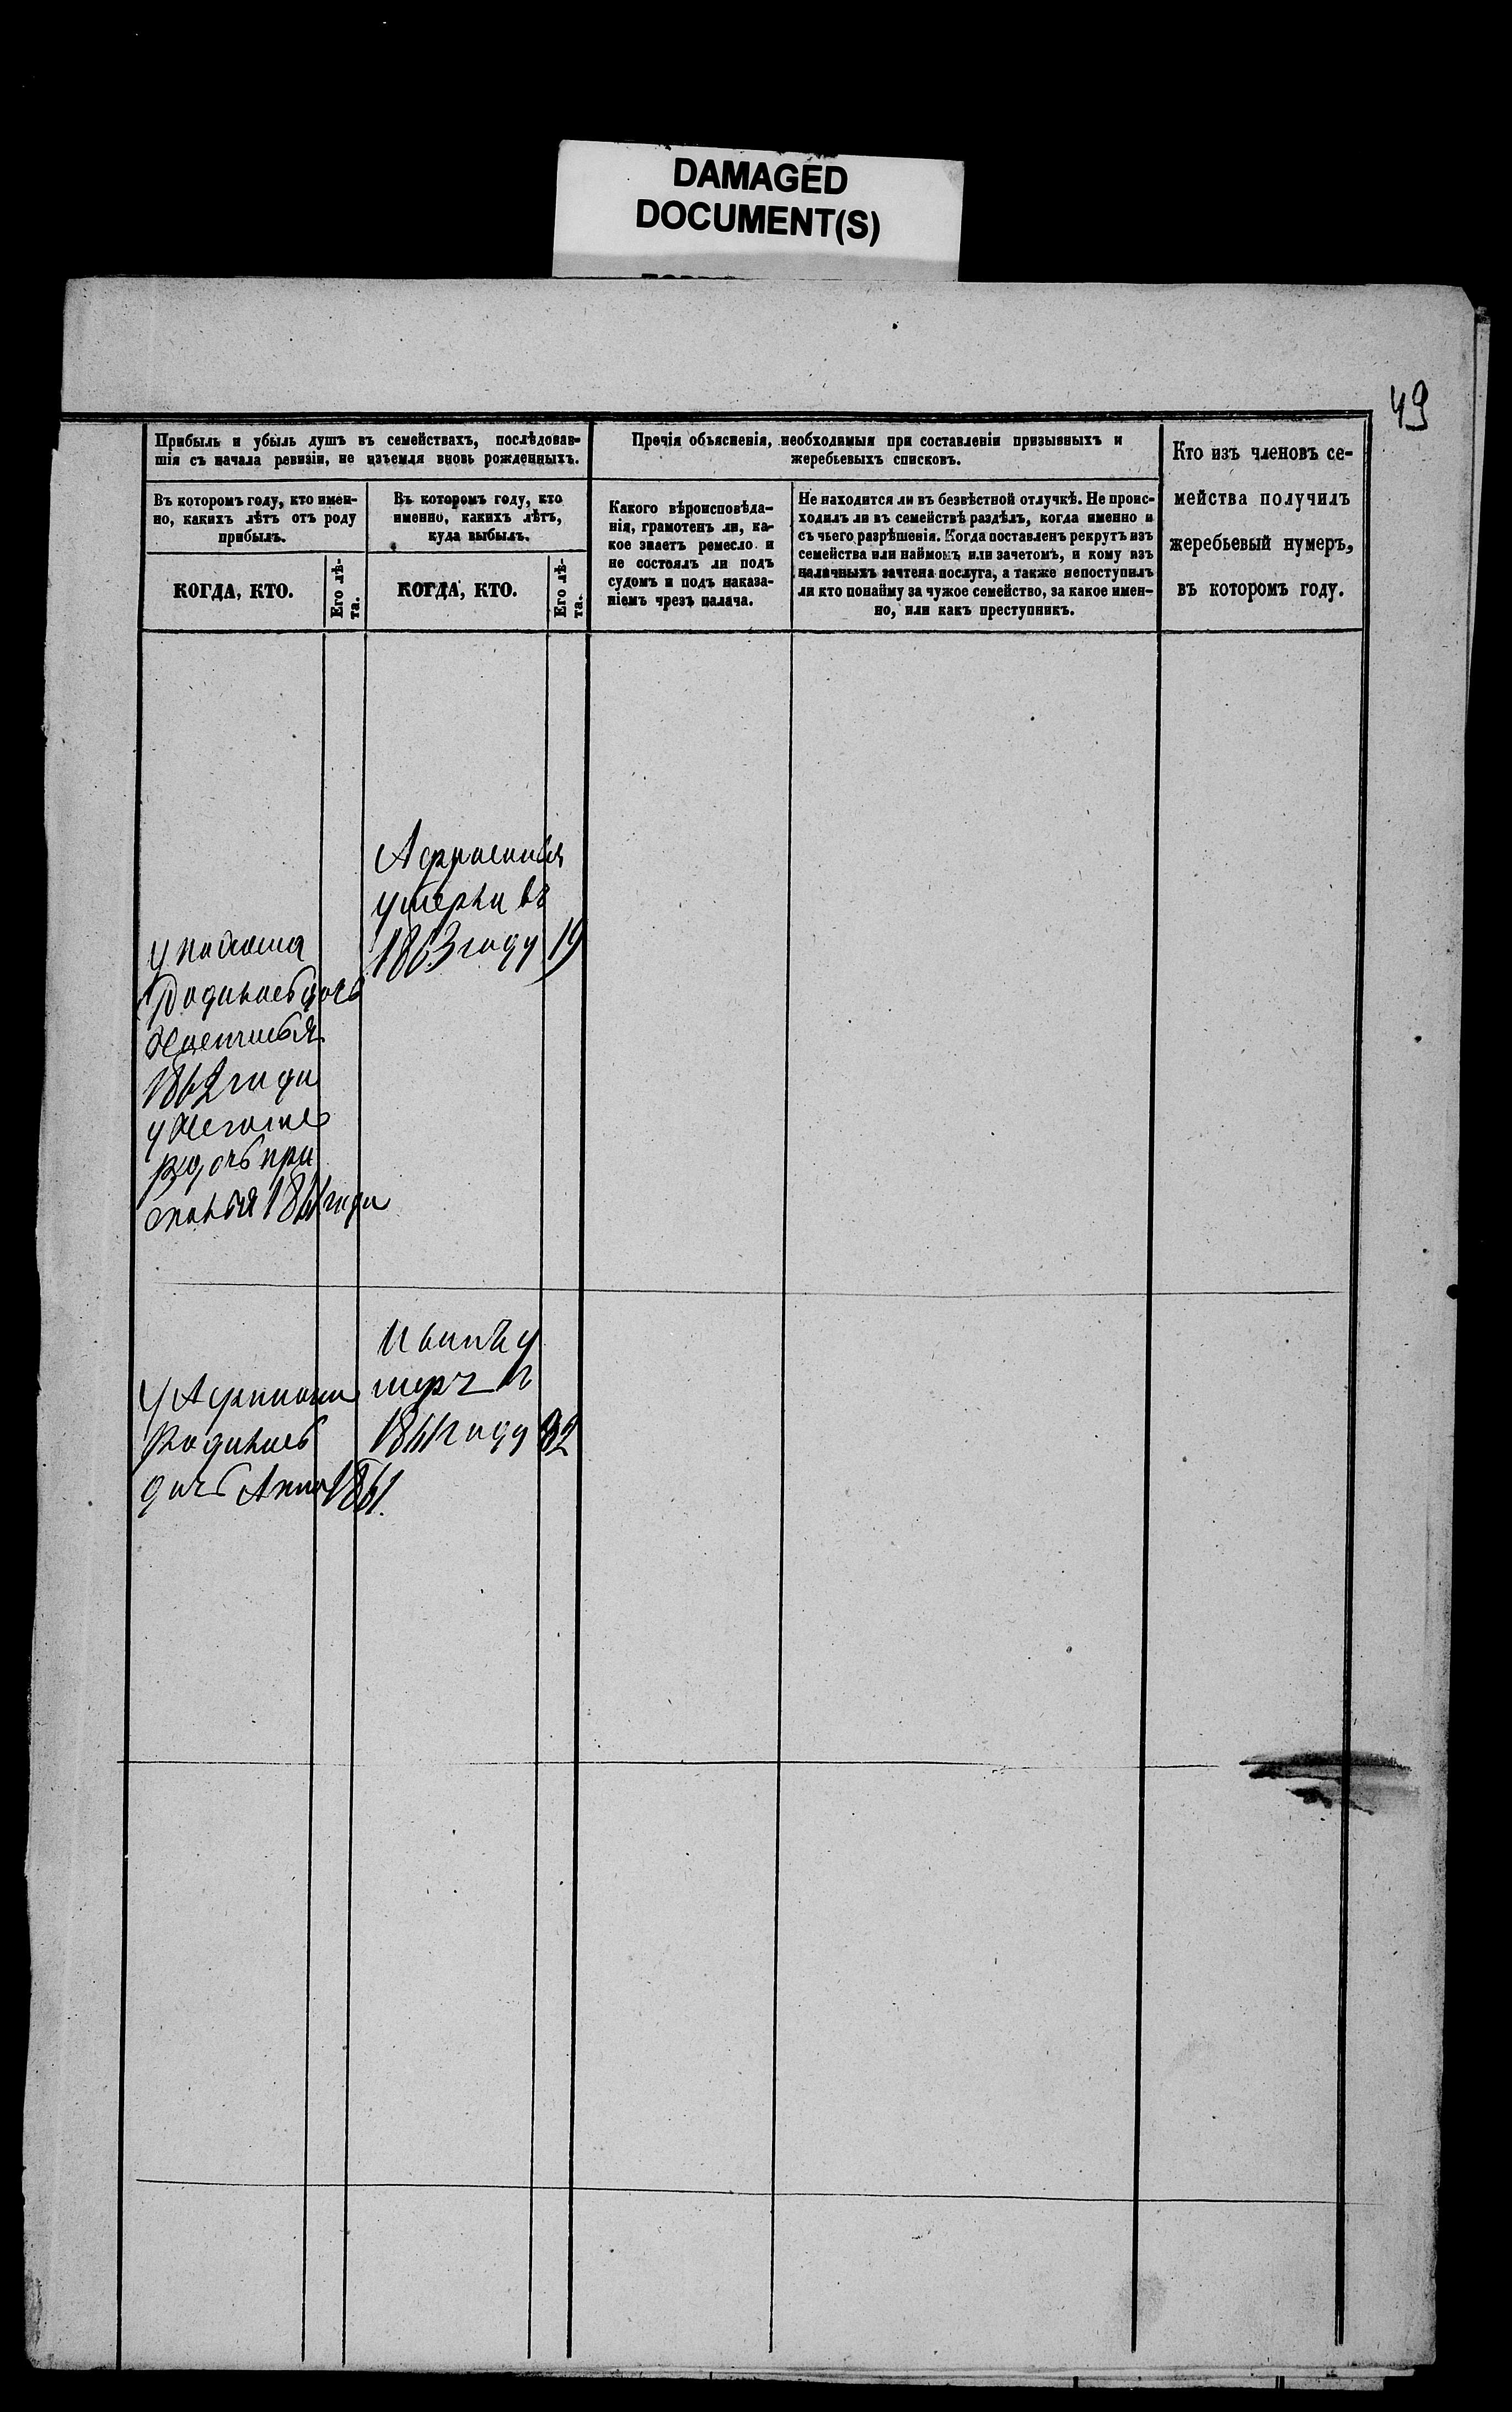 DAMAGED
DOCUMENT(S)
49
Прибыль и убыль душъ въ семействахъ, послѣдовав-
шія съ начала ревизіи, не изъемля вновь рожденныхъ.
Въ которомъ году, кто имен-
но, какихъ лѣтъ отъ роду
прибылъ.
КОГДА, КТО.
Его лѣ-
та.
Въ которомъ году, кто
именно, какихъ лѣтъ,
куда выбылъ.
КОГДА, КТО.
Его лѣ-
та.
Прочія объясненія, необходимыя при составленіи призывныхъ и
жеребьевыхъ списковъ.
Какого вѣроисповѣда-
нія, грамотенъ ли, ка-
кое знаетъ ремесло и
не состоялъ ли подъ
судомъ и подъ наказа-
ніемъ чрезъ палача.
Не находится ли въ безвѣстной отлучкѣ. Не проис-
ходилъ ли въ семействѣ раздѣлъ, когда именно и
съ чьего разрѣшенія. Когда поставленъ рекрутъ изъ
семейства или наймомъ или зачетомъ, и кому изъ
наличныхъ зачтена послуга, а также непоступилъ
ли кто понайму за чужое семейство, за какое имен-
но, или какъ преступникъ.
Кто изъ членовъ се-
мейства получилъ
жеребьевый нумеръ,
въ которомъ году.
умерла въ
1863 году 19
родилась дочь
1862 года
дочь
1861 года
Иванъ у
меръ в
1861 году 82
родилась
дочь Анна 1861.